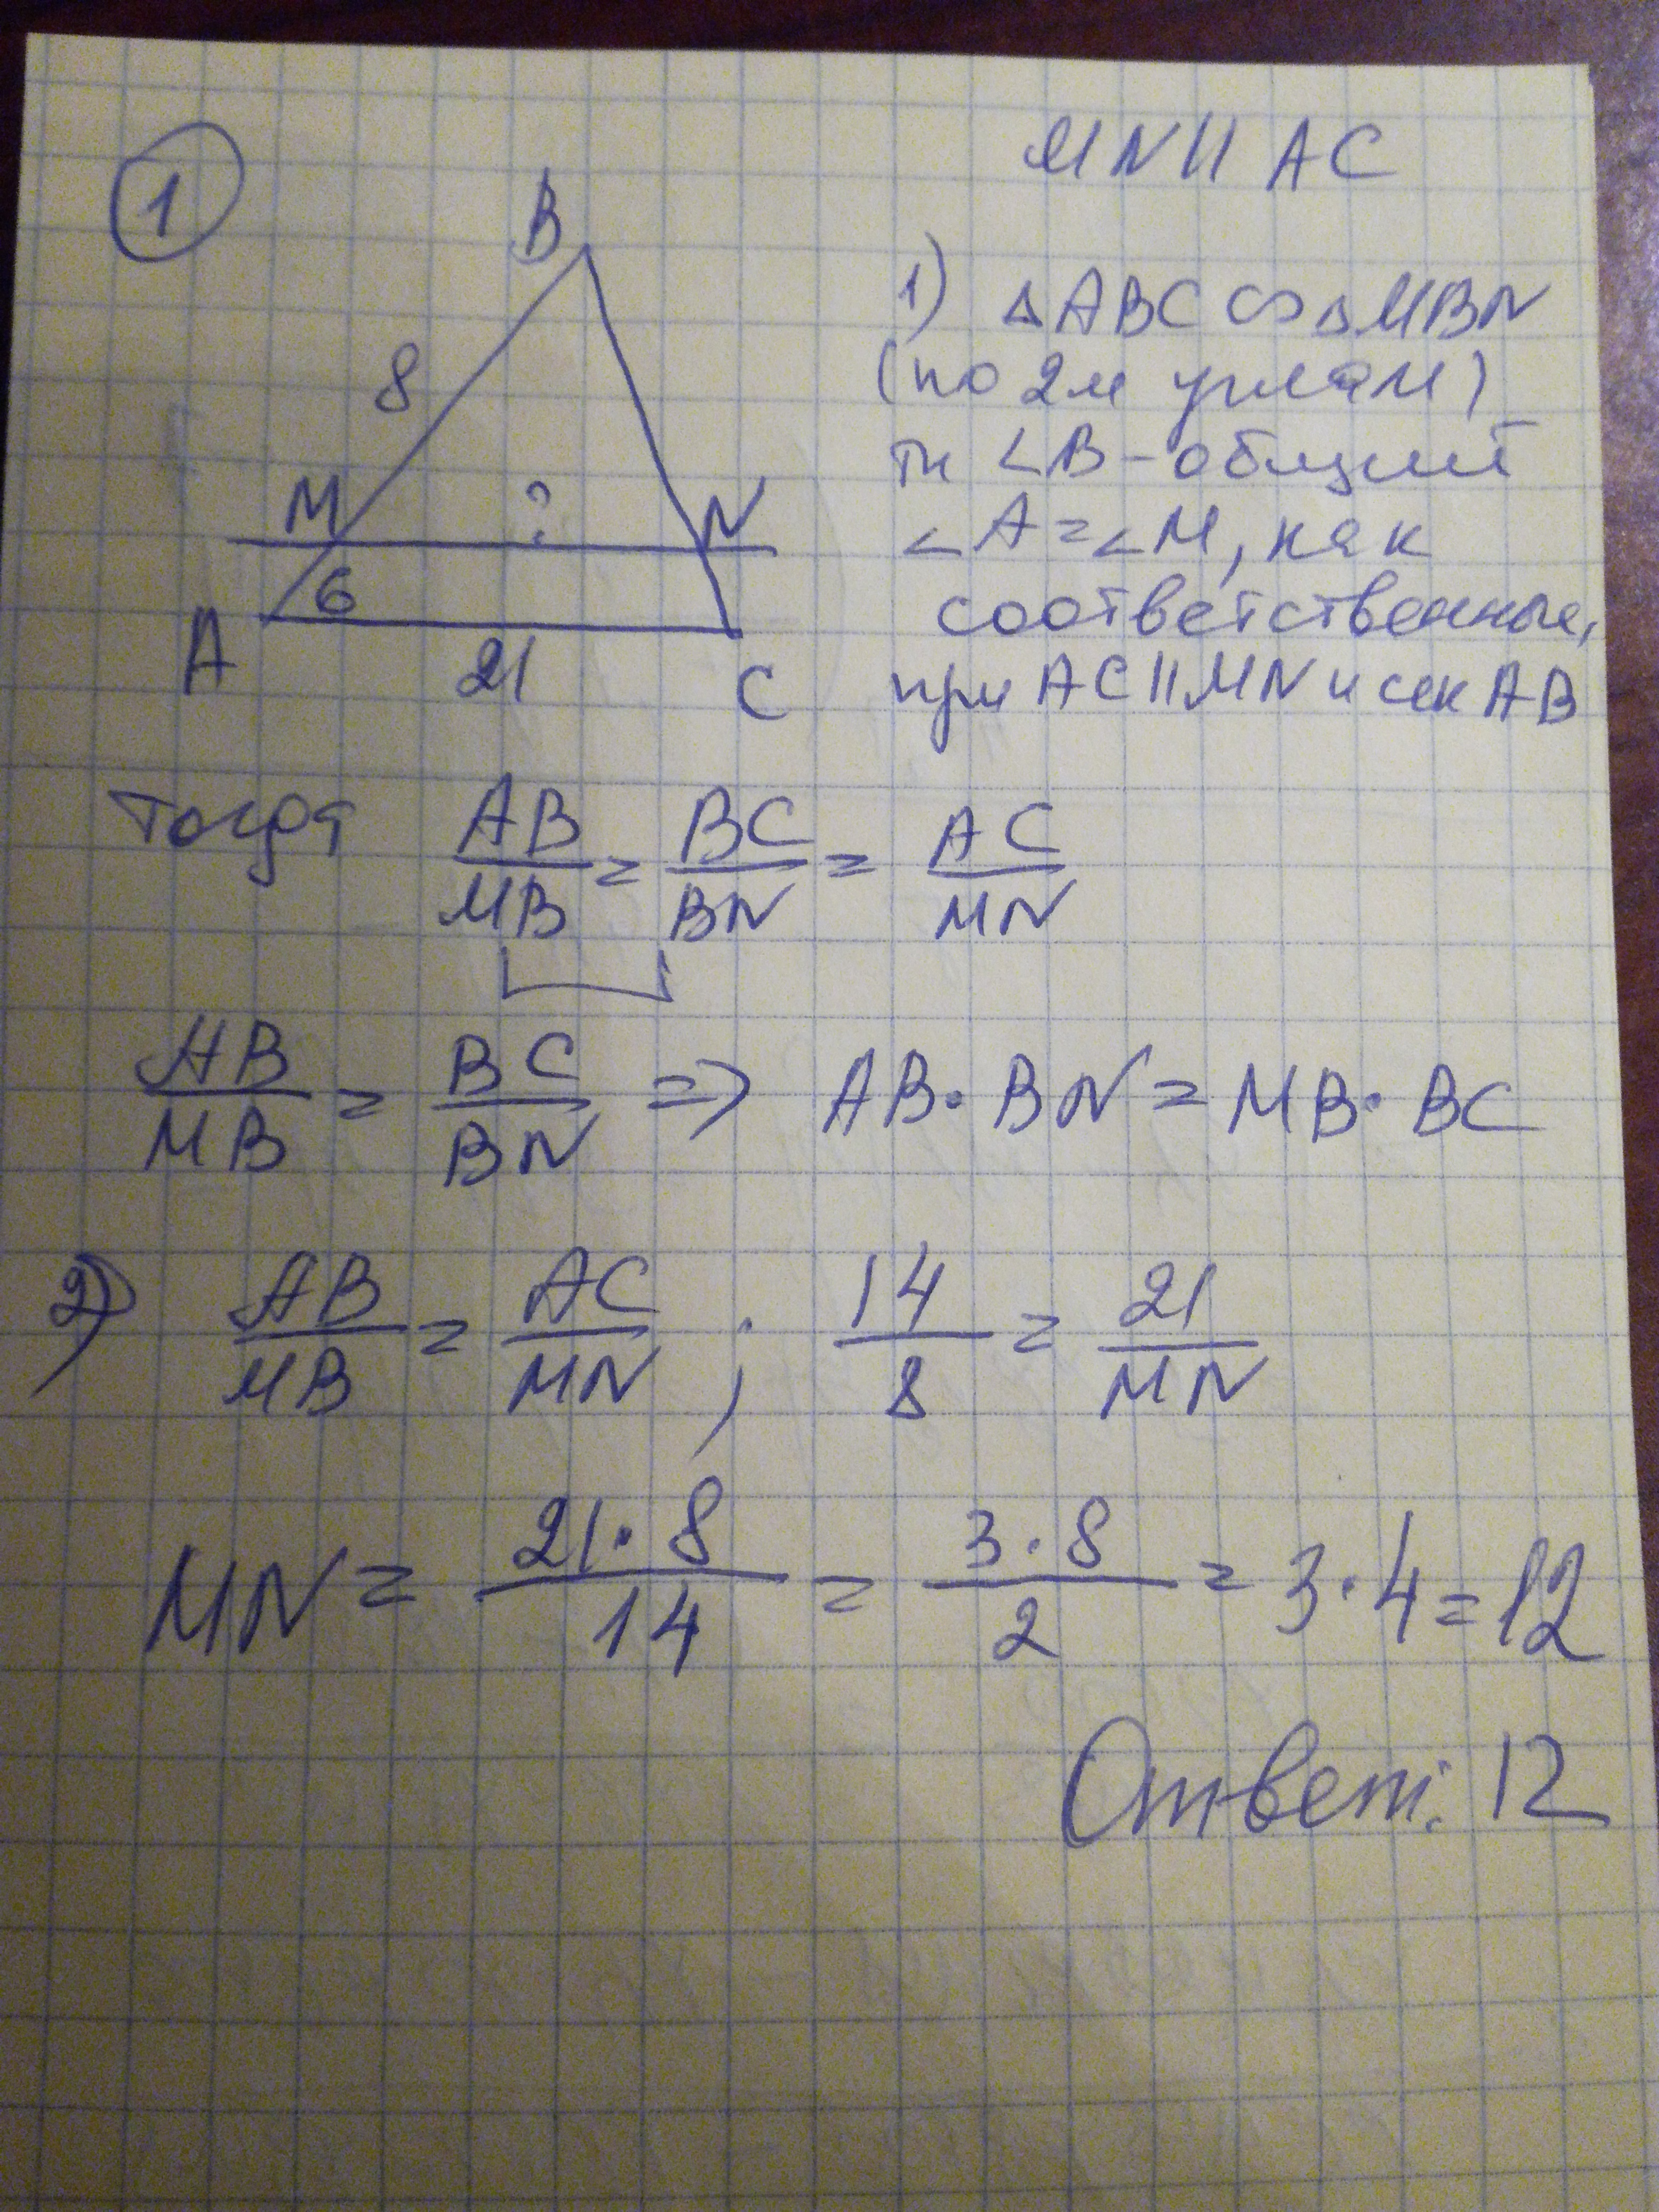 1
MN || AC
B
8
M ? N
6
A 21 C
1) △ABC ∽ △MBN
(по 2м углам)
тк ∠B - общий
∠A = ∠M, как
соответственные,
при AC || MN и сек AB
Тогда AB/MB = BC/BN = AC/MN
AB/MB = BC/BN => AB · BN = MB · BC
2) AB/MB = AC/MN ; 14/8 = 21/MN
MN = 21 · 8/14 = 3 · 8/2 = 3 · 4 = 12
Ответ: 12